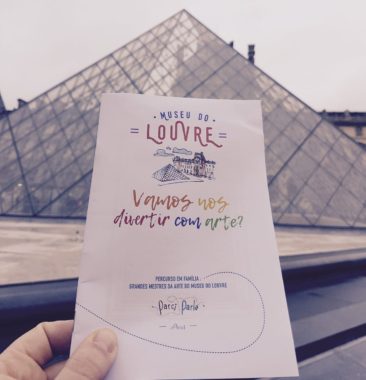 MUSEU DO
LOUVRE
Vamos nos
divertir com arte?
PERCURSO EM FAMÍLIA:
GRANDES MESTRES DA ARTE DO MUSEU DO LOUVRE
Parci Parla
Paris